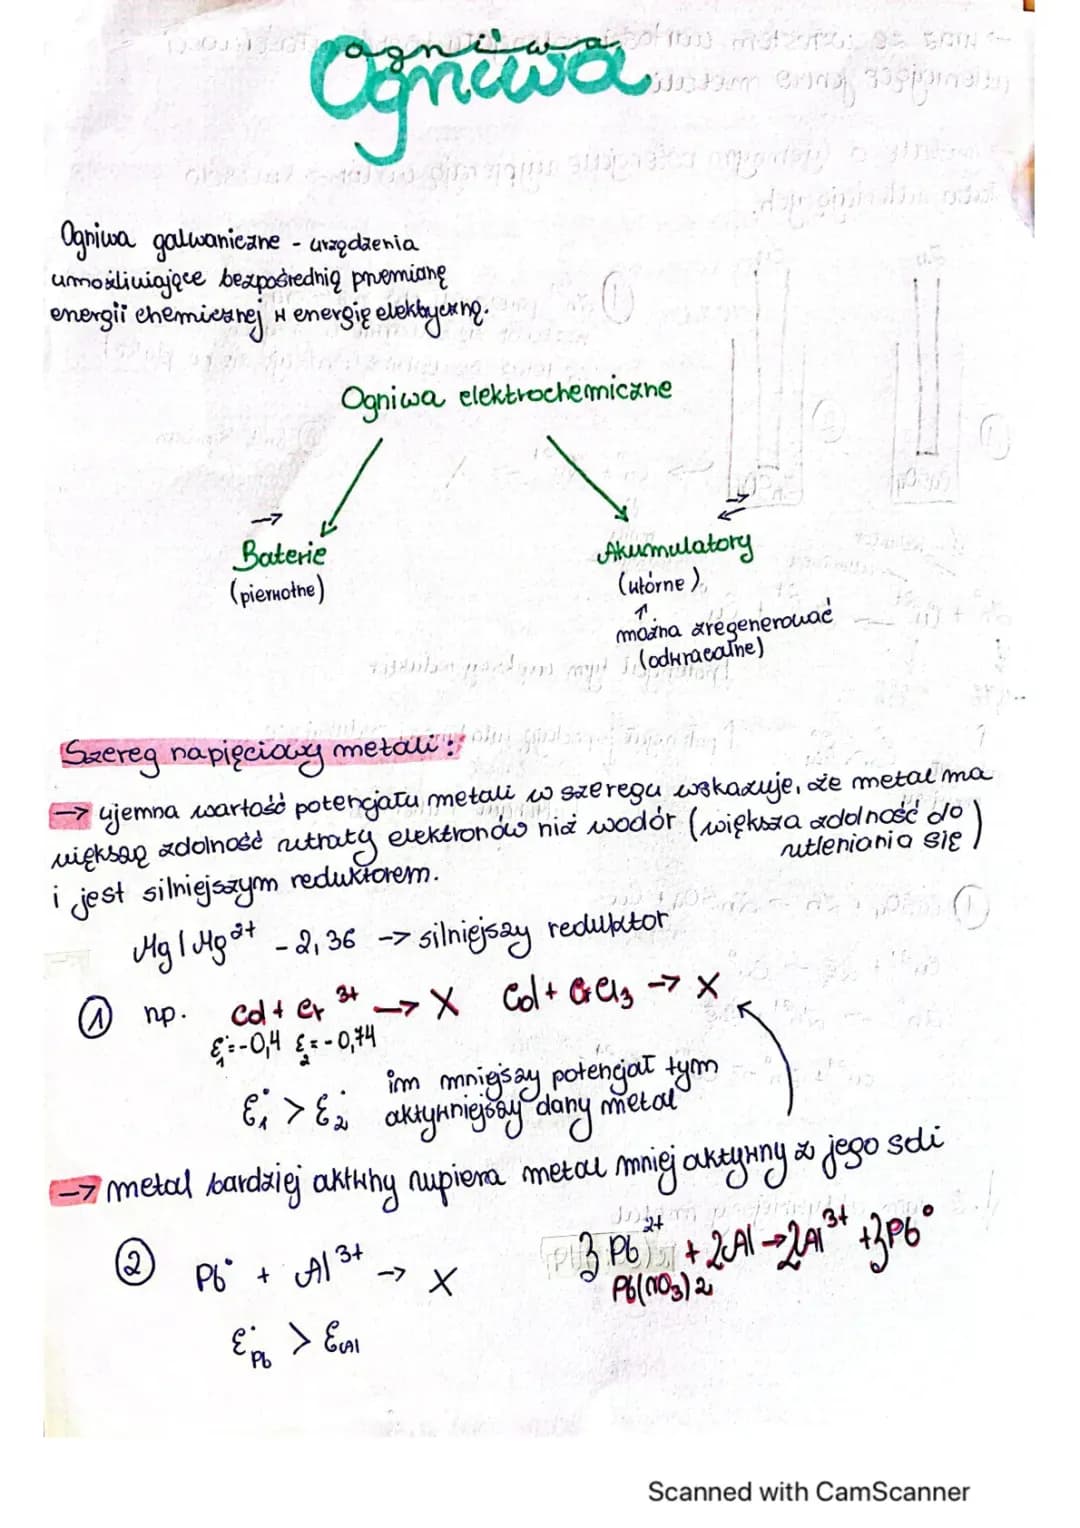 Ogniwa
ogniwa
Ogniwa galwaniczne - urządzenia
umożliwiające bezpośrednią przemianę
energii chemicznej w energię elektryczną.
Ogniwa elektrochemiczne
→
Baterie
(pierwotne)
⇄
Akumulatory
(wtórne)
↑
można zregenerować
(odwracalne)
Szereg napięciowy metali:
→ ujemna wartość potencjału metali w szeregu wskazuje, że metal ma
większą zdolność utraty elektronów niż wodór (większa zdolność do
utleniania się)
i jest silniejszym reduktorem.
Mg | Mg²⁺ - 2,36 -> silniejszy reduktor
① np. Cd + Cr³⁺ → X Cd + CrCl₃ → X
ε₁°=-0,4 ε₂°=-0,74
ε₁° > ε₂° im mniejszy potencjał tym
aktywniejszy dany metal
→ metal bardziej aktywny wypiera metal mniej aktywny z jego soli
② Pb° + Al³⁺ → X 3Pb²⁺ + 2Al → 2Al³⁺ + 3Pb°
Pb(NO₃)₂
ε°Pb > ε(Al
Scanned with CamScanner